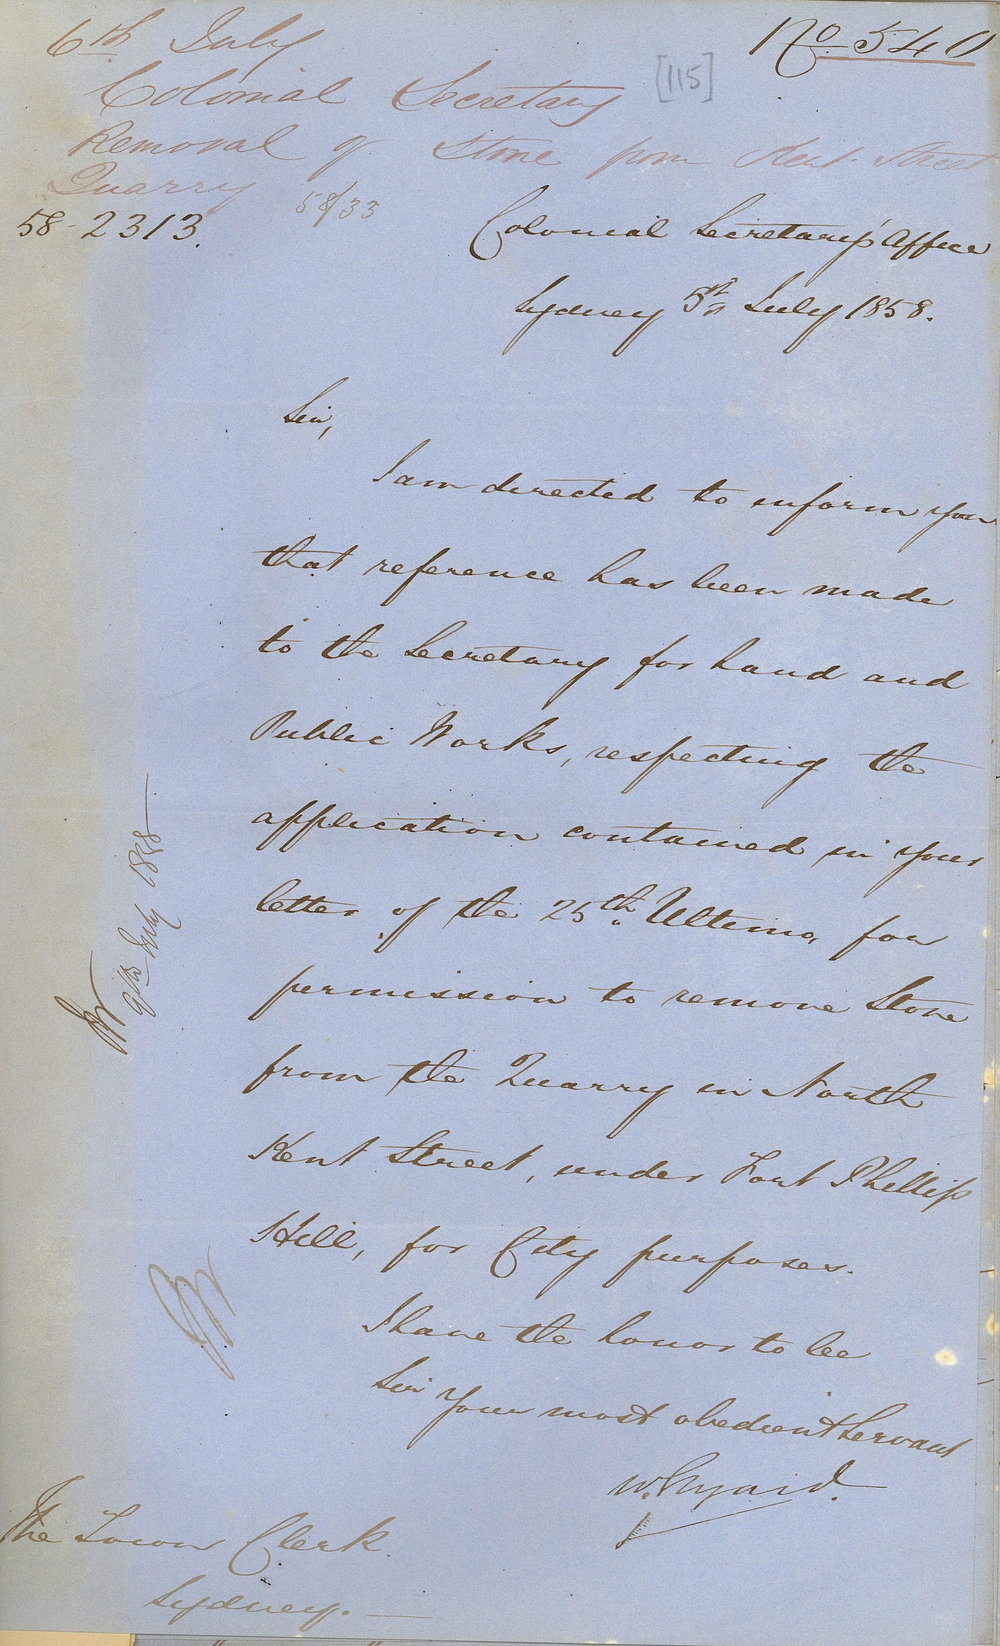 6th July
No 540
Colonial Secretary
[115]
Removal of Stone from Kent Street
Quarry
58/33
58-2313.
Colonial Secretary's Office
Sydney 5th July 1858.
Sir,
I am directed to inform you
that reference has been made
to the Secretary for Land and
Public Works, respecting the
application contained in your
letter of the 25th Ultimo, for
permission to remove Stone
from the Quarry in North
Kent Street, under Fort Phillip
Hill, for City purposes.
I have the honor to be
Sir your most obedient Servant
W. Elyard.
The Town Clerk
Sydney.
9th July 1858